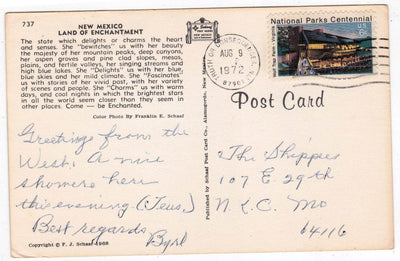 737
NEW MEXICO
LAND OF ENCHANTMENT
The state which delights or charms the heart
and senses. She "bewitches" us with her beauty
the majesty of her mountain peaks, deep canyons,
her aspen groves and pine clad slopes, mesas,
plains, and fertile valleys, her singing streams and
high blue lakes. She "Delights" us with her blue,
blue skies and her mild climate. She "Fascinates"
us with stories of her early history, and the great
variety of scenes and people. She "Charms" us with warm
days, and cool nights in which the brightest stars
in all the world seem closer than they seem in
other places. Come — be Enchanted.
Color Photo By Franklin E. Schaaf
Greetings from the
West. A nice
shower here
this evening (Tues.)
Best regards
Byrl
Copyright © F. J. Schaaf 1968
Published by Schaaf Post Card Co., Alamogordo, New Mexico
TRUTH OR CONSEQUENCES
AUG 9
1972
87901
National Parks Centennial
Wolf Trap Farm, Virginia
Post Card
The Shippee
107 E 29th
N.K.C. Mo
64116